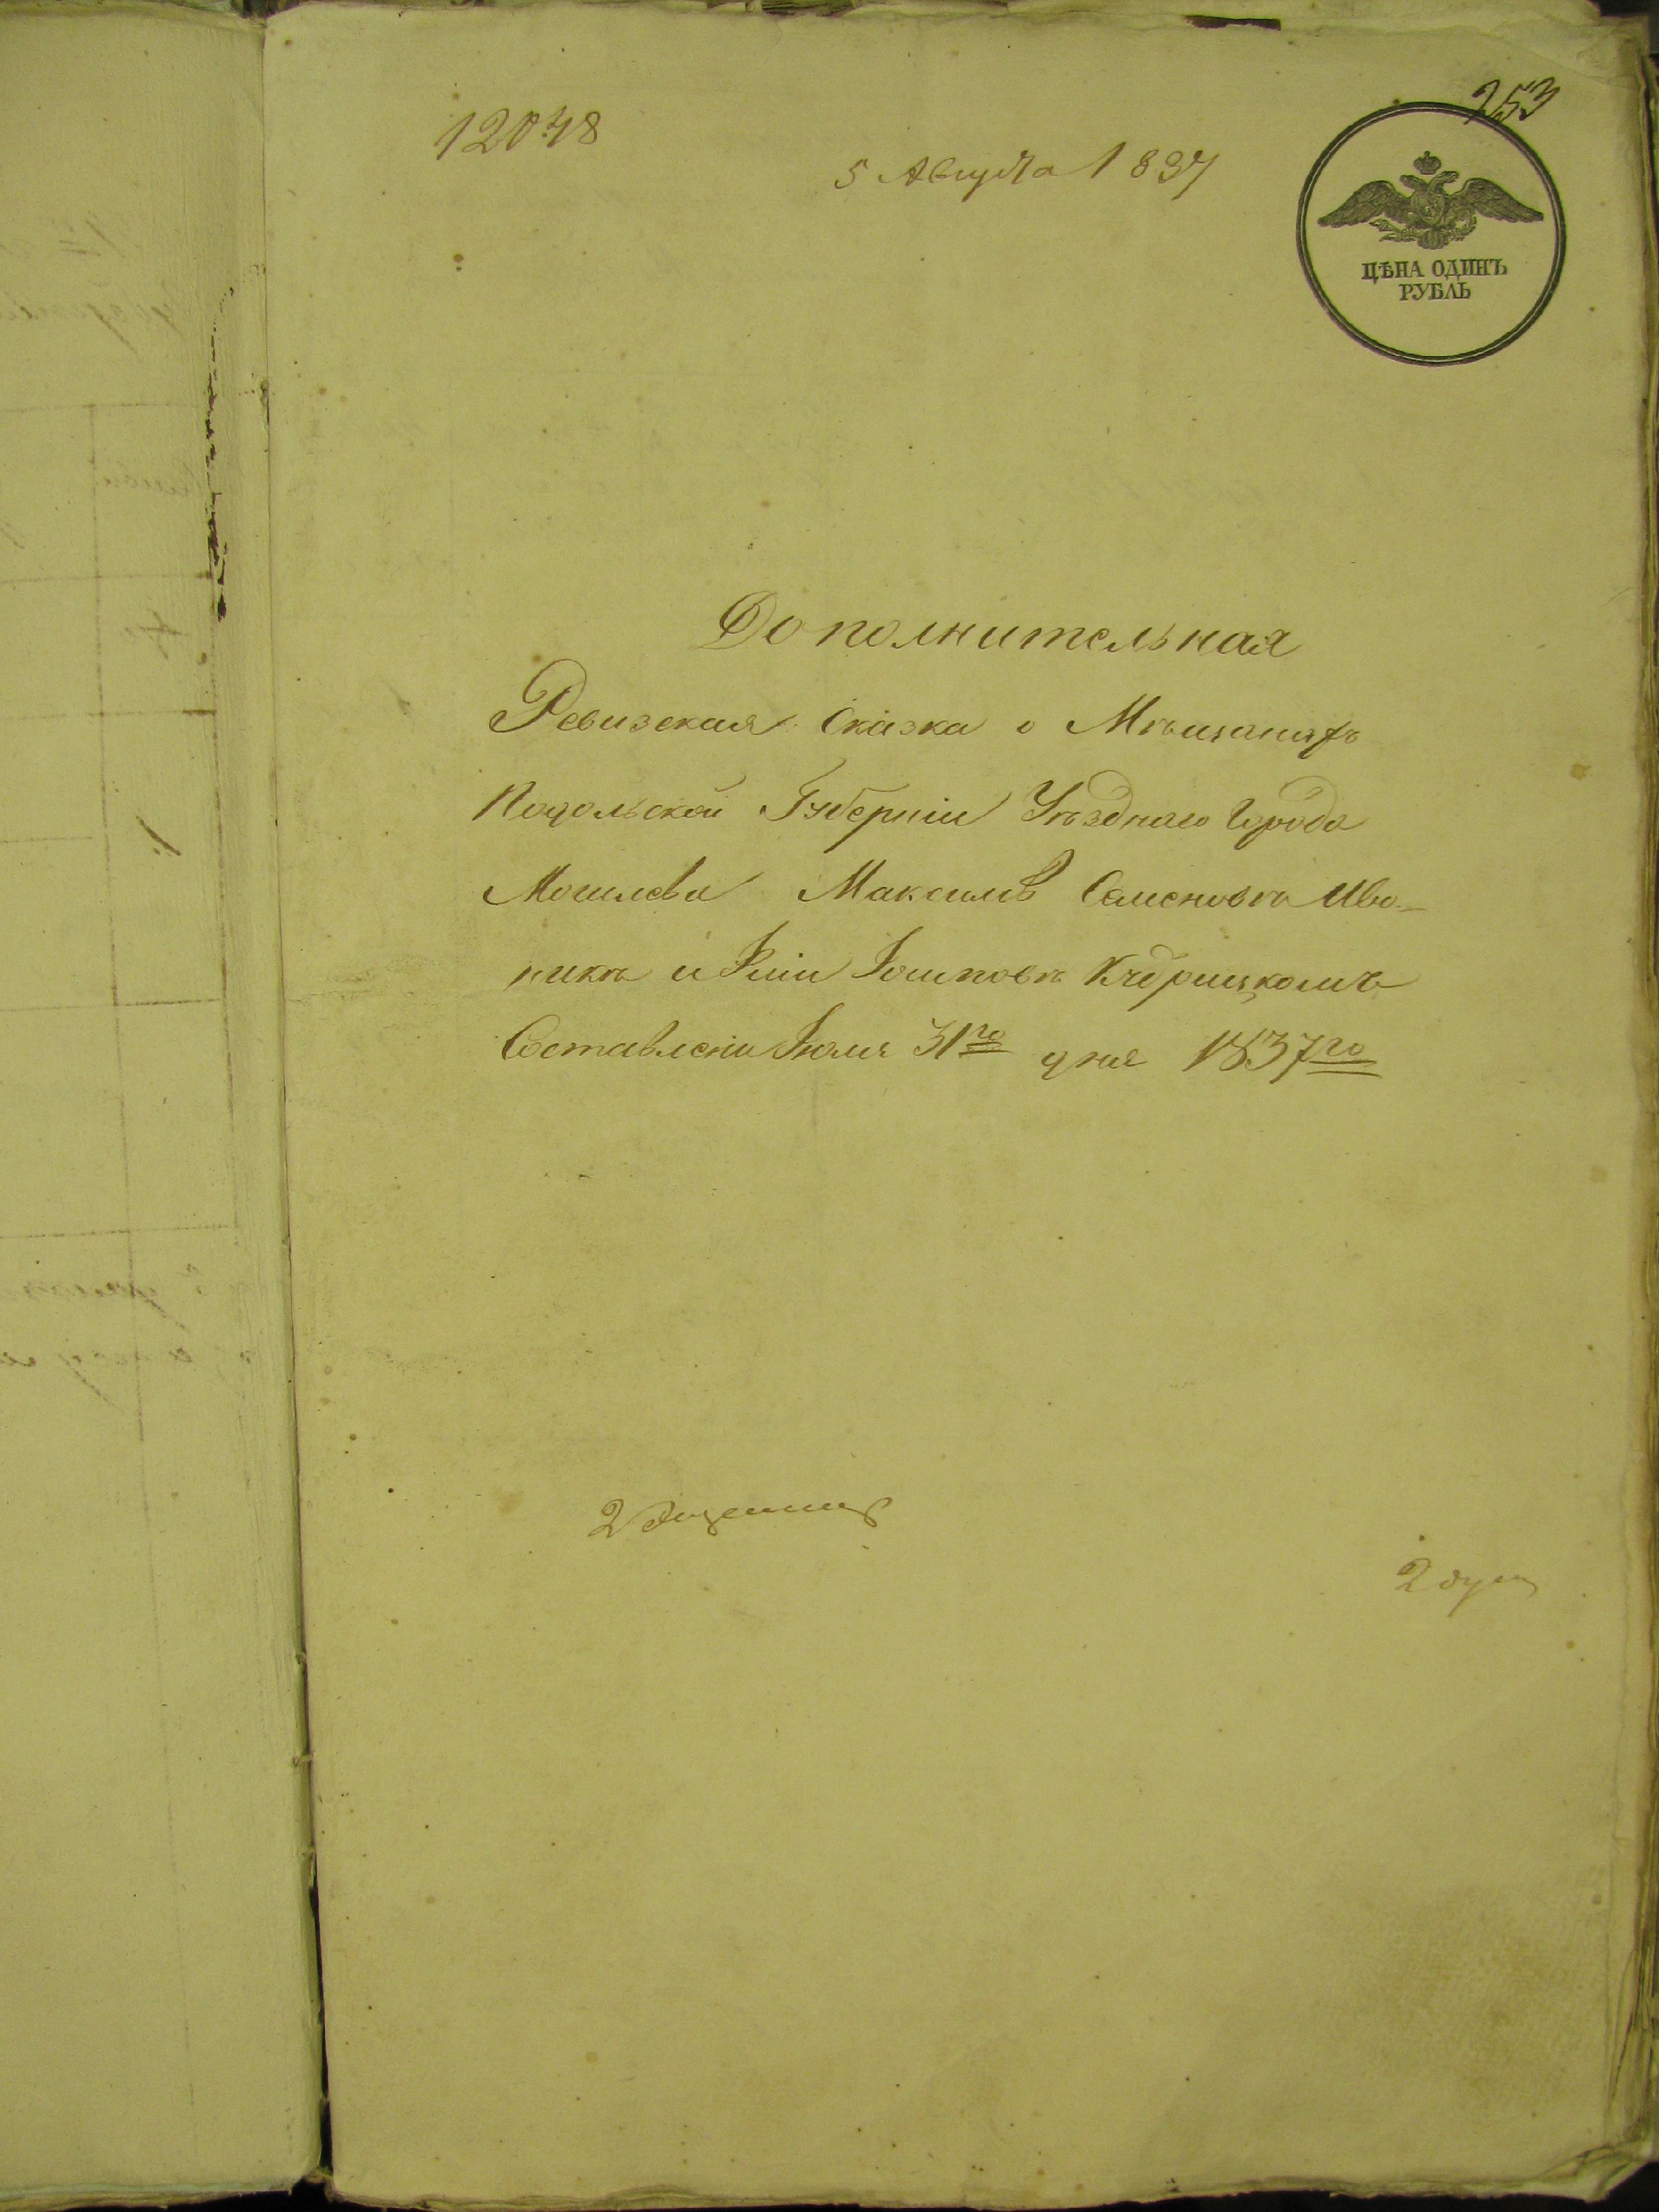 253
12048
5 Августа 1837
ЦѢНА ОДИНЪ
РУБЛЬ
Дополнительная
Ревизская Сказка о Мѣщанахъ
Подольской Губерніи Уѣзднаго Города
Могилева Максимѣ Семеновѣ Иво-
никѣ и Осиповѣ
Составлена Іюля 31го дня 1837го
2
2 душ